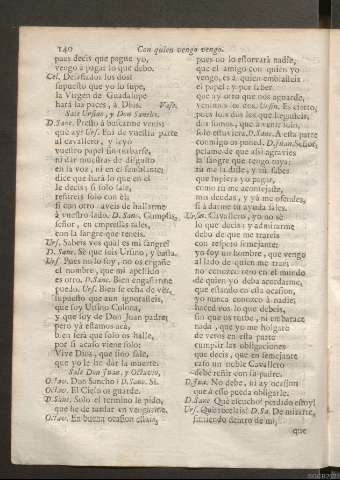 140 Con quien vengo vengo.
pues decis que pague yo,
vengo à pagar lo que debo.
Cel. Desafiados los dos!
supuesto que yo lo supe,
la Virgen de Guadalupe
hará las paces, à Dios. Vase.
Sale Ursino, y Don Sancho.
D. Sanc. Presto à buscarme venis
què ay? Urs. Fui de vuestra parte
al cavallero, y leyò
vuestro papel sin turbarse,
ni dàr muestras de disgusto
en la voz, ni en el semblante;
dice que harà lo que en èl
le decis; si solo sale,
reñireis solo con èl;
si con otro, aveis de hallarme
à vuestro lado. D. Sanc. Cumplis,
señor, en empressas tales,
con la sangre que teneis.
Urs. Sabeis vos quàl es mi sangre?
D. Sanc. Sè que sois Ursino, y basta.
Urs. Pues no lo soy, no os engañe
el nombre, que mi apellido
es otro. D. Sanc. Bien engañarme
puedo. Urs. Bien se echa de vèr,
supuesto que aun ignorasteis,
que soy Ursino Colona,
y que soy de Don Juan padre;
pero yà estamos acà,
bien serà que solo os halle,
por si acaso viene solo:
Vive Dios, que sino sale,
que yo le he de dàr la muerte.
Sale Don Juan, y Octavio.
Octav. Don Sancho? D. Sanc. Si.
Octav. El Cielo os guarde.
D. Sanc. Solo el termino le pido,
que he de tardar en vengarme.
Octav. En buena ocasion estais,
pues no lo estorvarà nadie,
que el amigo con quien yo
vengo, es à quien embiasteis
el papel; y por saber
que ay otro que nos aguarde,
venimos los dos. Ursin. Es cierto,
pues los dos sè que llegasteis,
dos somos, que à venir solo,
solo estuviera. D. Sanc. A esta parte
conmigo os poned. D. Juan. Señor,
pesame de que assi agravies
la sangre que tengo tuya;
tu me la diste, y tu sabes
que supiera yo pagar,
como tu me aconsejaste,
mis deudas, y yà me ofendes,
si à darme tu ayuda sales.
Ursin. Cavallero, yo no sè
lo que decis; y admirarme
debo de que me trateis
con respeto semejante:
yo soy un hombre, que vengo
al lado de quien me trae;
no conozco reo en el mundo
de quien yo deba acordarme,
que estando en esta ocasion,
yo nunca conozco à nadie;
haced vos lo que debeis,
sin que os turbe, ni embarace
nada, que yo me holgarè
de veros en esta parte
cumplir las obligaciones
que decis, que en semejante
caso un noble Cavallero
debe reñir con su padre.
D. Jua. No debe, ni ay ocasion
que à esso pueda obligarle.
D. Sanc. Què escucho! perdido estoy!
Urs. Què rezelais? D. Sa. De mirarte,
sintiendo dentro de mi,
que